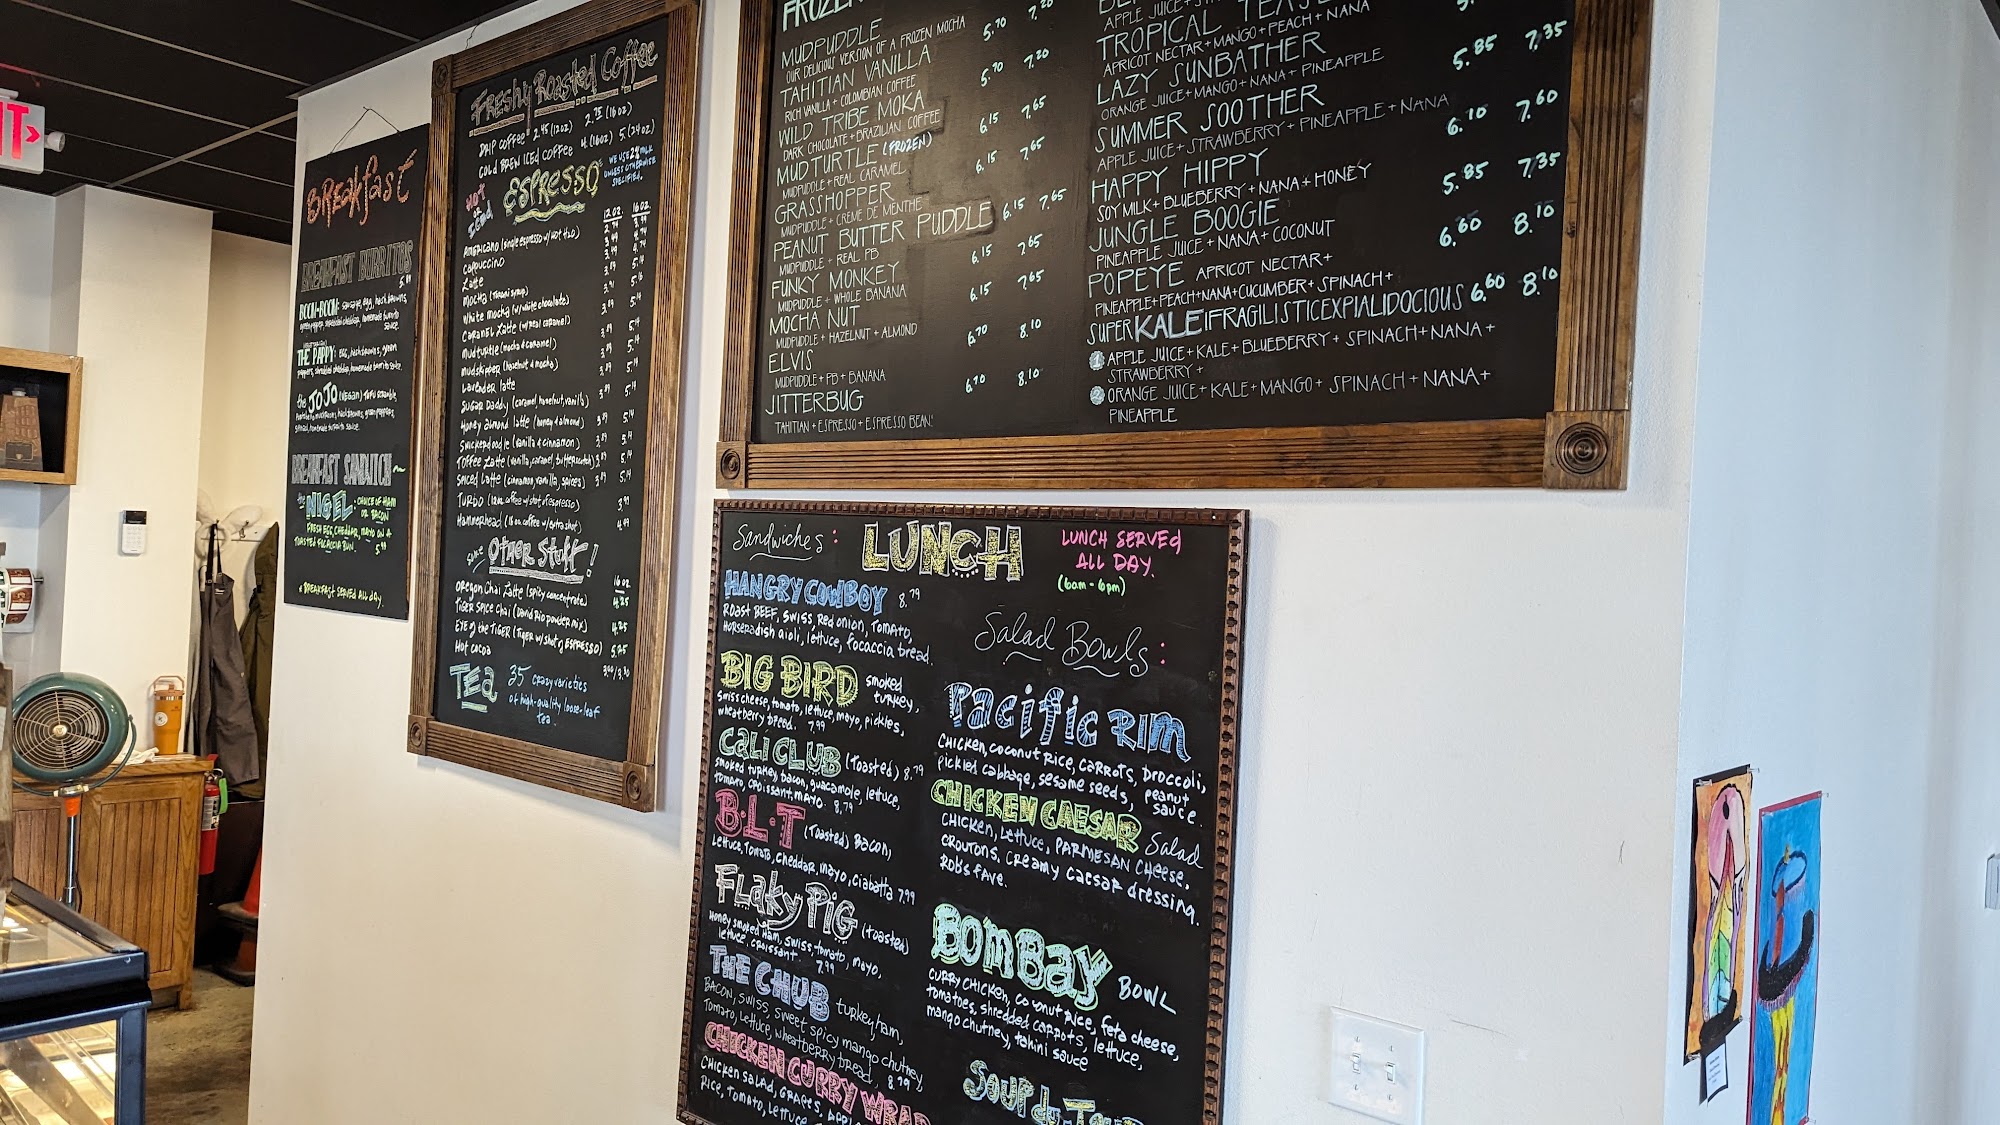 IT
BREAKFAST
BREAKFAST BURRITOS
5.99
BOOM-BOOM: sausage, egg, hash browns,
green pepper, shredded cheddar, homemade burrito
sauce.
THE PAPPY: EGG, hashbrowns, green
peppers, shredded cheddar, homemade burrito sauce.
the JOJO (VEGAN) TOFU scramble,
mushrooms, hashbrowns, green peppers,
spread, homemade burrito sauce.
BREAKFAST SANDWICH
the NIGEL: CHOICE OF HAM
OR BACON
FRESH EGG, CHEDDAR, MAYO ON A
TOASTED FOCACCIA BUN. 5.99
* BREAKFAST SERVED ALL DAY.
FRESHLY ROASTED COFFEE
DRIP COFFEE 2.45 (12oz) 2.75 (16oz)
COLD BREW ICED COFFEE 4. (16oz) 5. (24oz)
HOT or ICED ESPRESSO
WE USE 2% MILK
UNLESS OTHERWISE
SPECIFIED.
12 oz. 16 oz.
AMERICANO (single espresso w/ HOT H2O)
CAPPUCCINO
Latte
MOCHA (Torani syrup)
White mocha (w/ white chocolate)
Caramel Latte (w/ real caramel)
Mudturtle (mocha & caramel)
Mudskipper (hazelnut & mocha)
Lavender latte
SUGAR DADDY (caramel, hazelnut, vanilla)
Honey almond latte (honey & almond) 3.89 5.14
Snickerdoodle (vanilla & cinnamon) 3.89 5.14
TOFFEE Latte (vanilla, caramel, butterscotch) 3.89 5.14
SPICED Latte (cinnamon, vanilla, spices) 3.89 5.14
TURBO (12oz coffee w/ shot of espresso) 3.99
Hammerhead (16 oz. coffee w/ extra shot) 4.99
some OTHER STUFF!
16 oz
OREGON Chai Latte (spicy concentrate) 4.25
TIGER SPICE Chai (David Rio powder mix) 4.25
EYE of the TIGER (TIGER w/ shot of ESPRESSO) 5.25
Hot cocoa 3.00/3.30
TEA 35 crazy varieties
of high-quality loose-leaf
tea.
FROZEN
MUDPUDDLE 5.70 7.20
OUR DELICIOUS VERSION OF A FROZEN MOCHA
TAHITIAN VANILLA 5.70 7.20
RICH VANILLA + COLOMBIAN COFFEE
WILD TRIBE MOKA 6.15 7.65
DARK CHOCOLATE + BRAZILIAN COFFEE
MUDTURTLE (FROZEN) 6.15 7.65
MUDPUDDLE + REAL CARAMEL
GRASSHOPPER
MUDPUDDLE + CREME DE MENTHE
PEANUT BUTTER PUDDLE 6.15 7.65
MUDPUDDLE + REAL PB
FUNKY MONKEY 6.15 7.65
MUDPUDDLE + WHOLE BANANA
MOCHA NUT 6.15 7.65
MUDPUDDLE + HAZELNUT + ALMOND
ELVIS 6.70 8.10
MUDPUDDLE + PB + BANANA
JITTERBUG 6.70 8.10
TAHITIAN + ESPRESSO + ESPRESSO BEAN!
APPLE JUICE +
TROPICAL TEASE
APRICOT NECTAR + MANGO + PEACH + NANA
LAZY SUNBATHER 5.85 7.35
ORANGE JUICE + MANGO + NANA + PINEAPPLE
SUMMER SOOTHER 6.10 7.60
APPLE JUICE + STRAWBERRY + PINEAPPLE + NANA
HAPPY HIPPY 5.85 7.35
SOY MILK + BLUEBERRY + NANA + HONEY
JUNGLE BOOGIE 6.60 8.10
PINEAPPLE JUICE + NANA + COCONUT
POPEYE APRICOT NECTAR +
PINEAPPLE + PEACH + NANA + CUCUMBER + SPINACH +
SUPER KALEIFRAGILISTICEXPIALIDOCIOUS 6.60 8.10
1. APPLE JUICE + KALE + BLUEBERRY + SPINACH + NANA +
STRAWBERRY +
2. ORANGE JUICE + KALE + MANGO + SPINACH + NANA +
PINEAPPLE
Sandwiches: LUNCH
LUNCH SERVED
ALL DAY.
(6am - 6pm)
HANGRY COWBOY 8.79
ROAST BEEF, SWISS, Red onion, TOMATO,
Horseradish aioli, lettuce, focaccia bread.
BIG BIRD smoked
turkey,
Swiss cheese, tomato, lettuce, mayo, pickles,
wheatberry bread. 7.99
CALI CLUB (Toasted) 8.79
smoked turkey, bacon, guacamole, lettuce,
tomato, croissant, mayo. 8.79
B.L.T (Toasted) Bacon,
Lettuce, Tomato, cheddar, mayo, ciabatta 7.99
FLAKY PIG (toasted)
Honey smoked Ham, swiss, tomato, mayo,
lettuce, croissant. 7.99
THE CHUB turkey, ham,
BACON, SWISS, sweet spicy mango chutney,
Tomato, lettuce, wheatberry bread, 8.79
CHICKEN CURRY WRAP
CHICKEN SALAD, GRAPES,
RICE, TOMATO, LETTUCE
Salad Bowls:
PACIFIC RIM
CHICKEN, coconut rice, carrots, broccoli,
pickled cabbage, sesame seeds, peanut
sauce.
CHICKEN CAESAR Salad
CHICKEN, Lettuce, PARMESAN cheese,
croutons, creamy caesar dressing.
Rob's fave.
BOMBAY BOWL
CURRY CHICKEN, coconut rice, feta cheese,
tomatoes, shredded carrots, lettuce,
mango chutney, tahini sauce
SOUP du